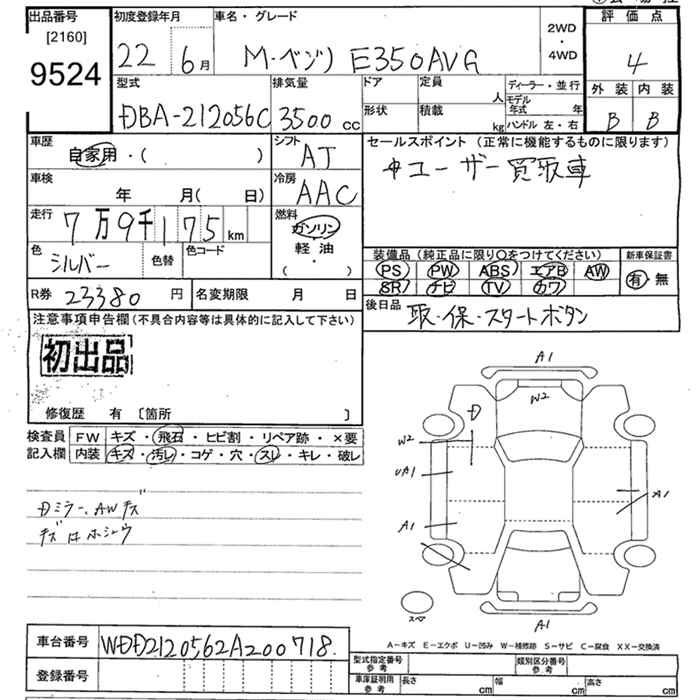 出品番号 初度登録年月 車名・グレード 評価点
[2160]
9524
22 6月 M・ベンツ E350AVG 2WD・4WD 4
型式 排気量 ドア 定員 人 ディーラー・並行 外装 内装
DBA-212056C 3500cc 形状 積載 kg モデル年式 年 ハンドル 左・右 B B
車歴 シフト セールスポイント(正常に機能するものに限ります)
自家用・( ) AT ユーザー買取車
車検 年 月( 日) 冷房 AAC
走行 7万9千175km 燃料 ガソリン
軽油
・( )
色 シルバー 色替 色コード 装備品(純正品に限り○をつけてください) 新車保証書
PS PW ABS エアB AW 有・無
SR ナビ TV カワ
R券 23380円 名変期限 月 日 後日品
取・保・スタートボタン
注意事項申告欄(不具合内容等は具体的に記入して下さい)
初出品
修復歴 有 〔箇所 〕
検査員 FW キズ・飛石・ヒビ割・リペア跡・×要
記入欄 内装 キズ・汚レ・コゲ・穴・スレ・キレ・破レ
Dミラー、AWキズ
キズ
A1
W2
D
W2
UA1
A1
A1
スペア
A1
A−キズ E−エクボ U−凹み W−補修跡 S−サビ C−腐食 XX−交換済
車台番号 WDD2120562A200718.
登録番号
型式指定番号 参考 類別区分番号 参考
車庫証明用 参考 長さ cm 幅 cm 高さ cm